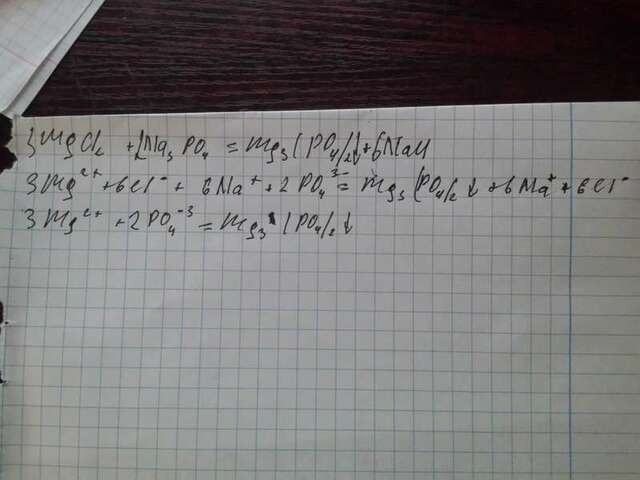 3MgCl₂ + 2Na₃PO₄ = Mg₃(PO₄)₂↓ + 6NaCl
3Mg²⁺ + 6Cl⁻ + 6Na⁺ + 2PO₄³⁻ = Mg₃(PO₄)₂↓ + 6Na⁺ + 6Cl⁻
3Mg²⁺ + 2PO₄⁻³ = Mg₃(PO₄)₂↓